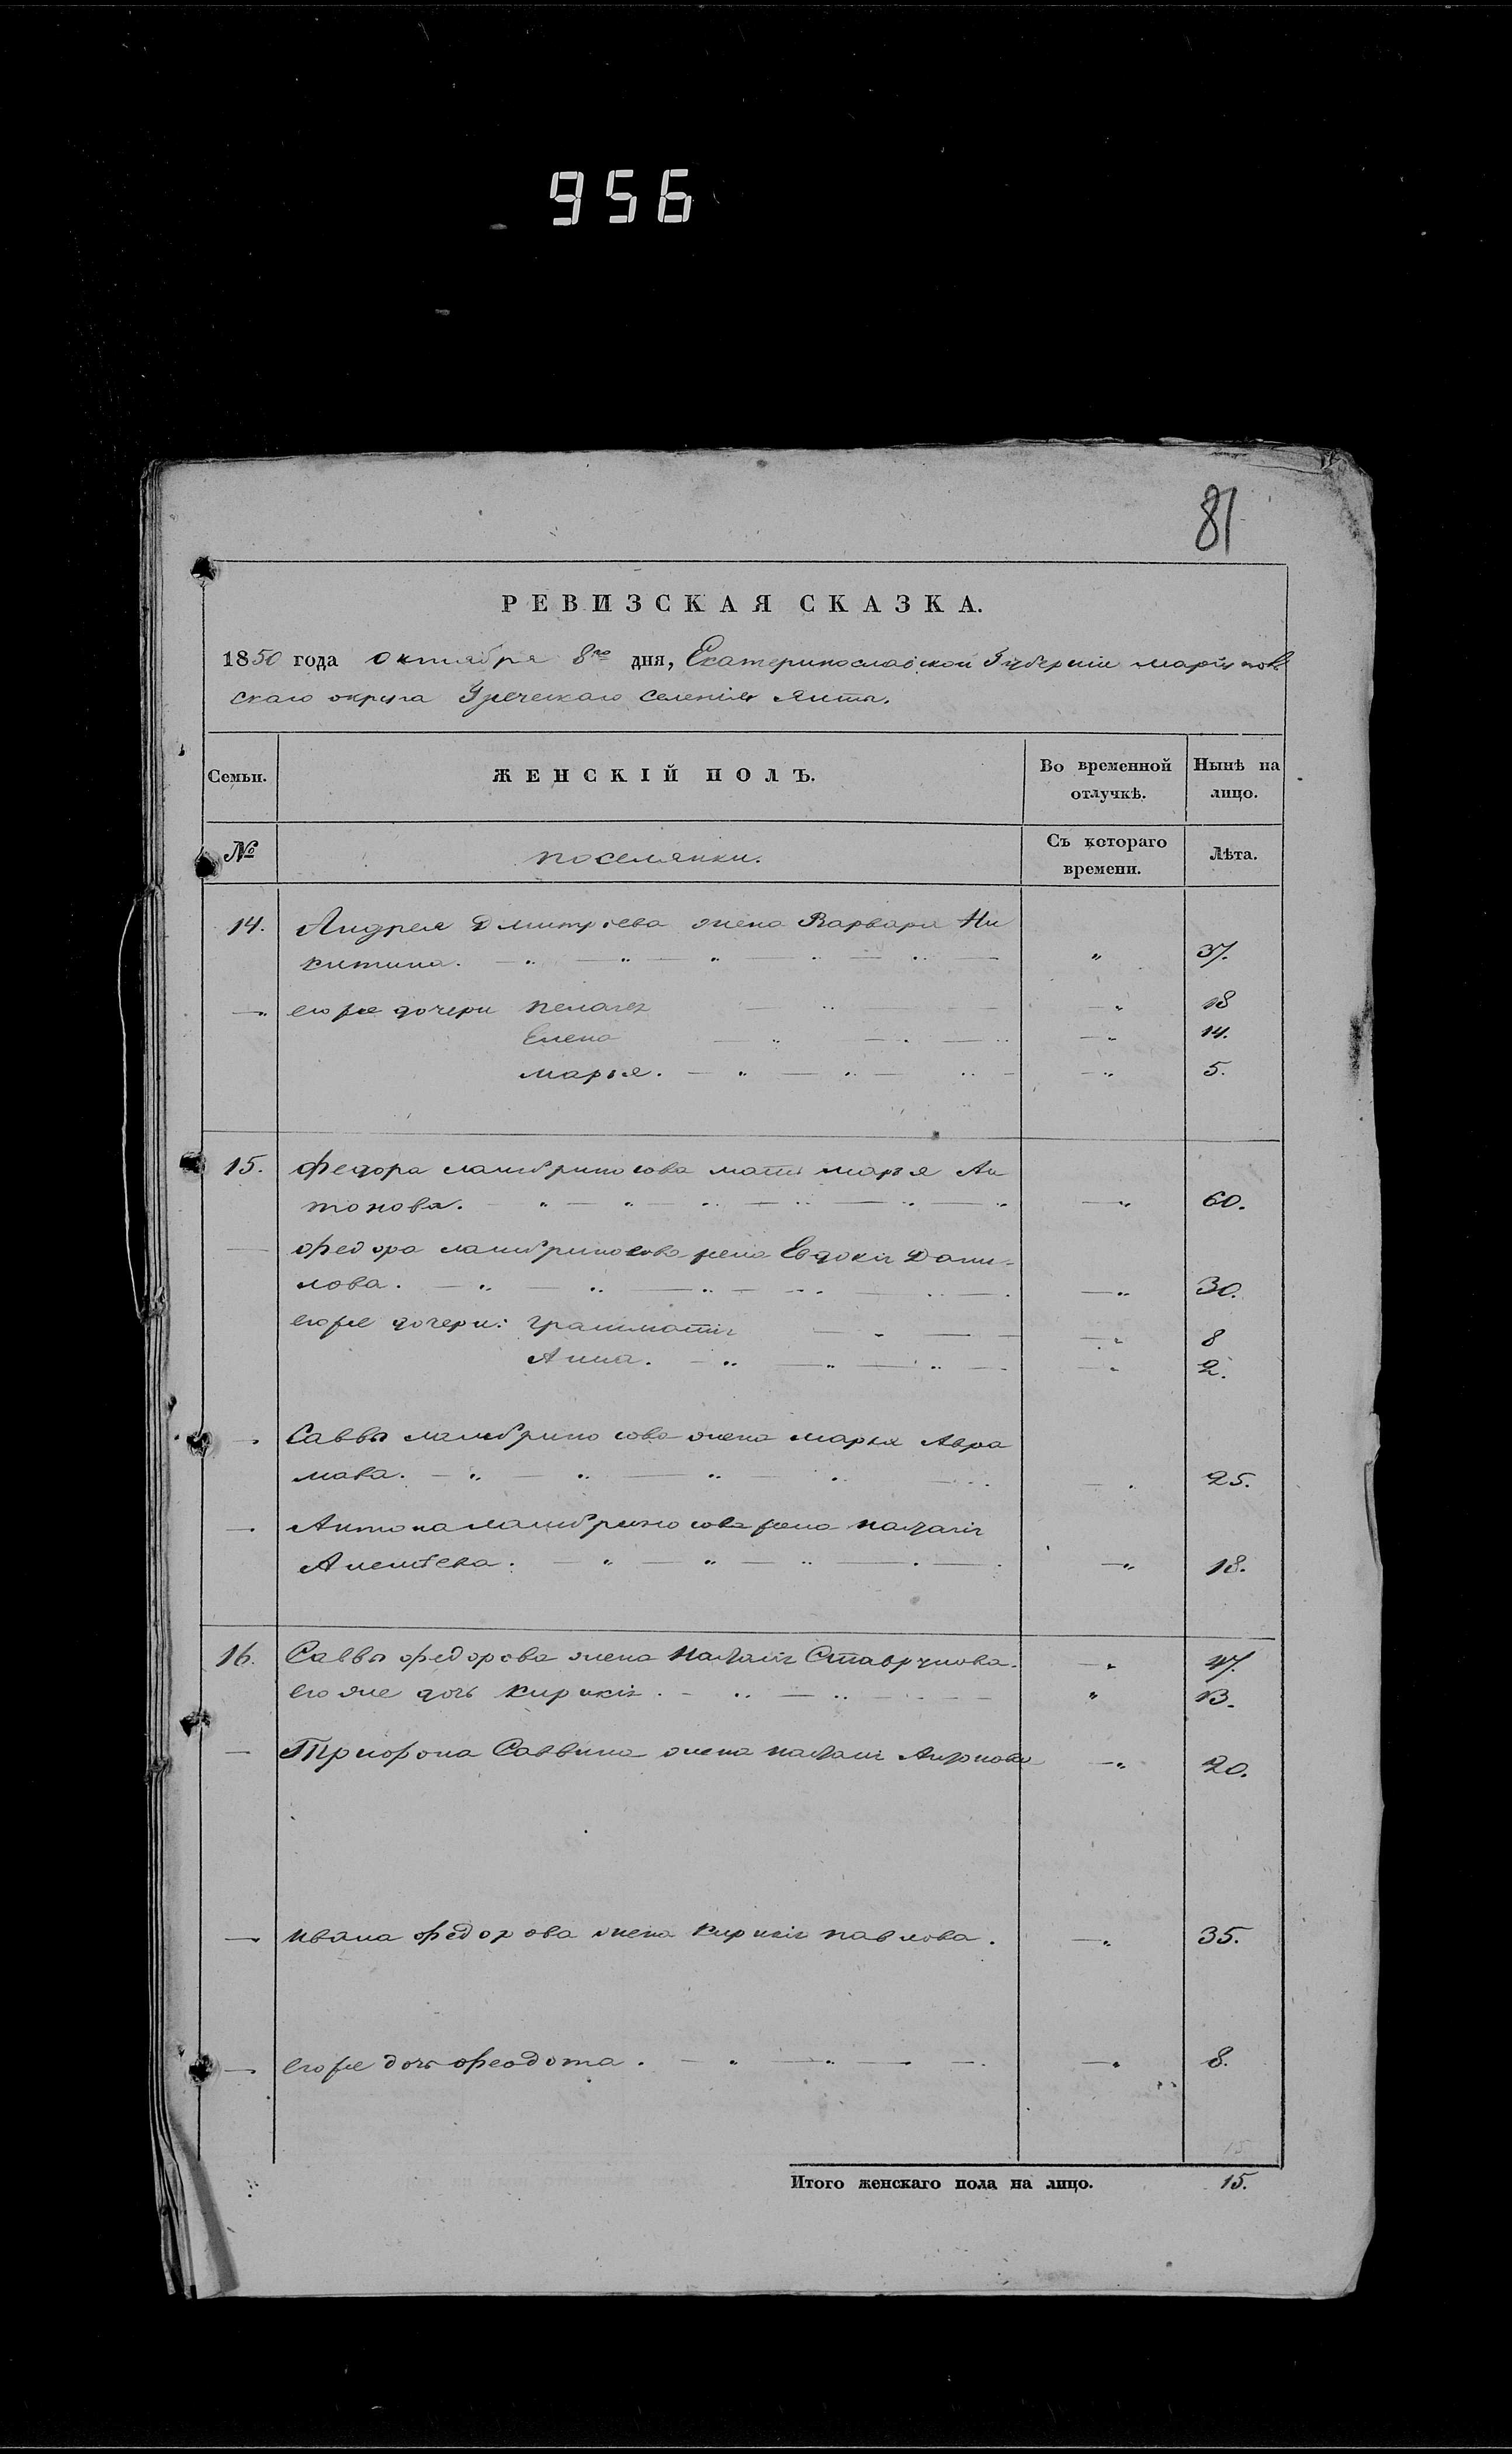 956
81
РЕВИЗСКАЯ СКАЗКА.
1850 года Октября 8го дня, Екатеринославской Губернiи марiупольскаго
скаго округа Греческаго селенiя Ялты.
Семьи. ЖЕНСКIЙ ПОЛЪ. Во временной отлучкѣ. Нынѣ на лицо.
№ поселянки. Съ котораго времени. Лѣта.
14. Андрея Дмитрiева жена Варвара Ни
китина. 37.
его же дочери Пелагея 18
Елена 14.
марья. 5.
15. федора ламбриносова мать марья Ан
тонова. 60.
федора ламбриносова жена Евдокiя Дани-
лова. 30.
его же дочери: Грамматiя 8
Анна. 2.
Саввы ламбриносова жена марья Авра
мова. 25.
Антона ламбриносова жена
18.
16. Саввы федорова жена 47.
его же дочь Кирикiя. 13.
Трифона Саввина жена 20.
ивана федорова жена Кирикiя павлова. 35.
его же дочь феодота. 8.
15
Итого женскаго пола на лицо. 15.